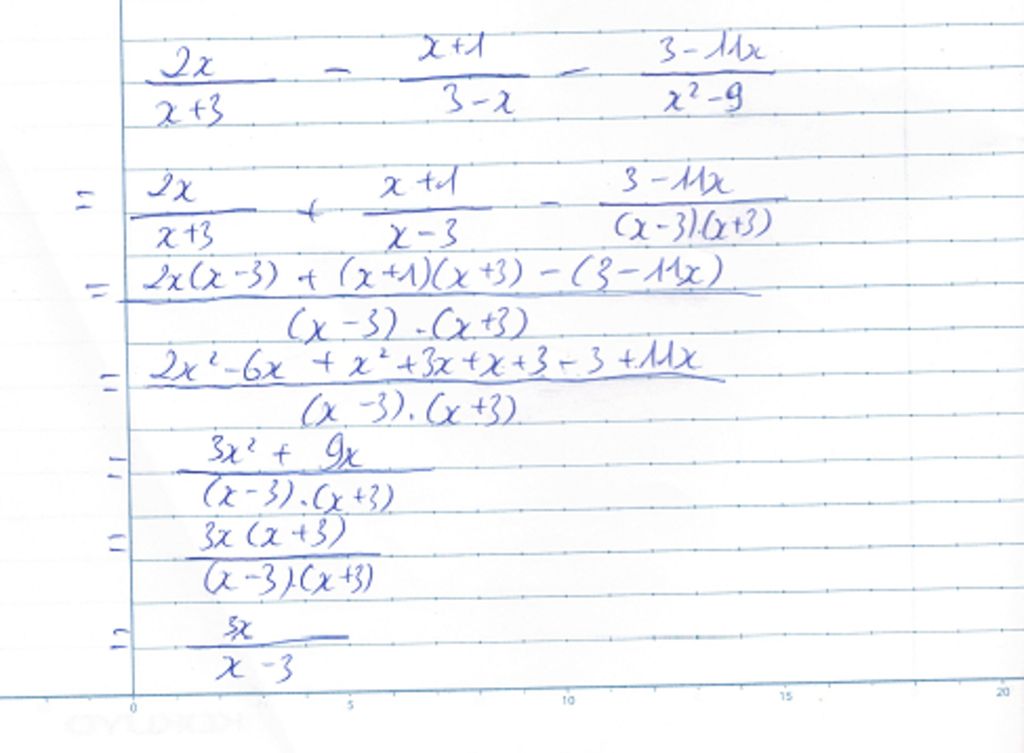 2x/(x+3) - (x+1)/(3-x) - (3-11x)/(x²-9)
= 2x/(x+3) + (x+1)/(x-3) - (3-11x)/((x-3).(x+3))
= (2x(x-3) + (x+1)(x+3) - (3-11x))/((x-3).(x+3))
= (2x²-6x + x²+3x+x+3-3+11x)/((x-3).(x+3))
= (3x² + 9x)/((x-3).(x+3))
= (3x(x+3))/((x-3).(x+3))
= 3x/(x-3)
0 5 10 15 20